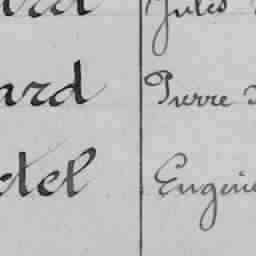 ard Jules
ard Pierre
tel Eugénie